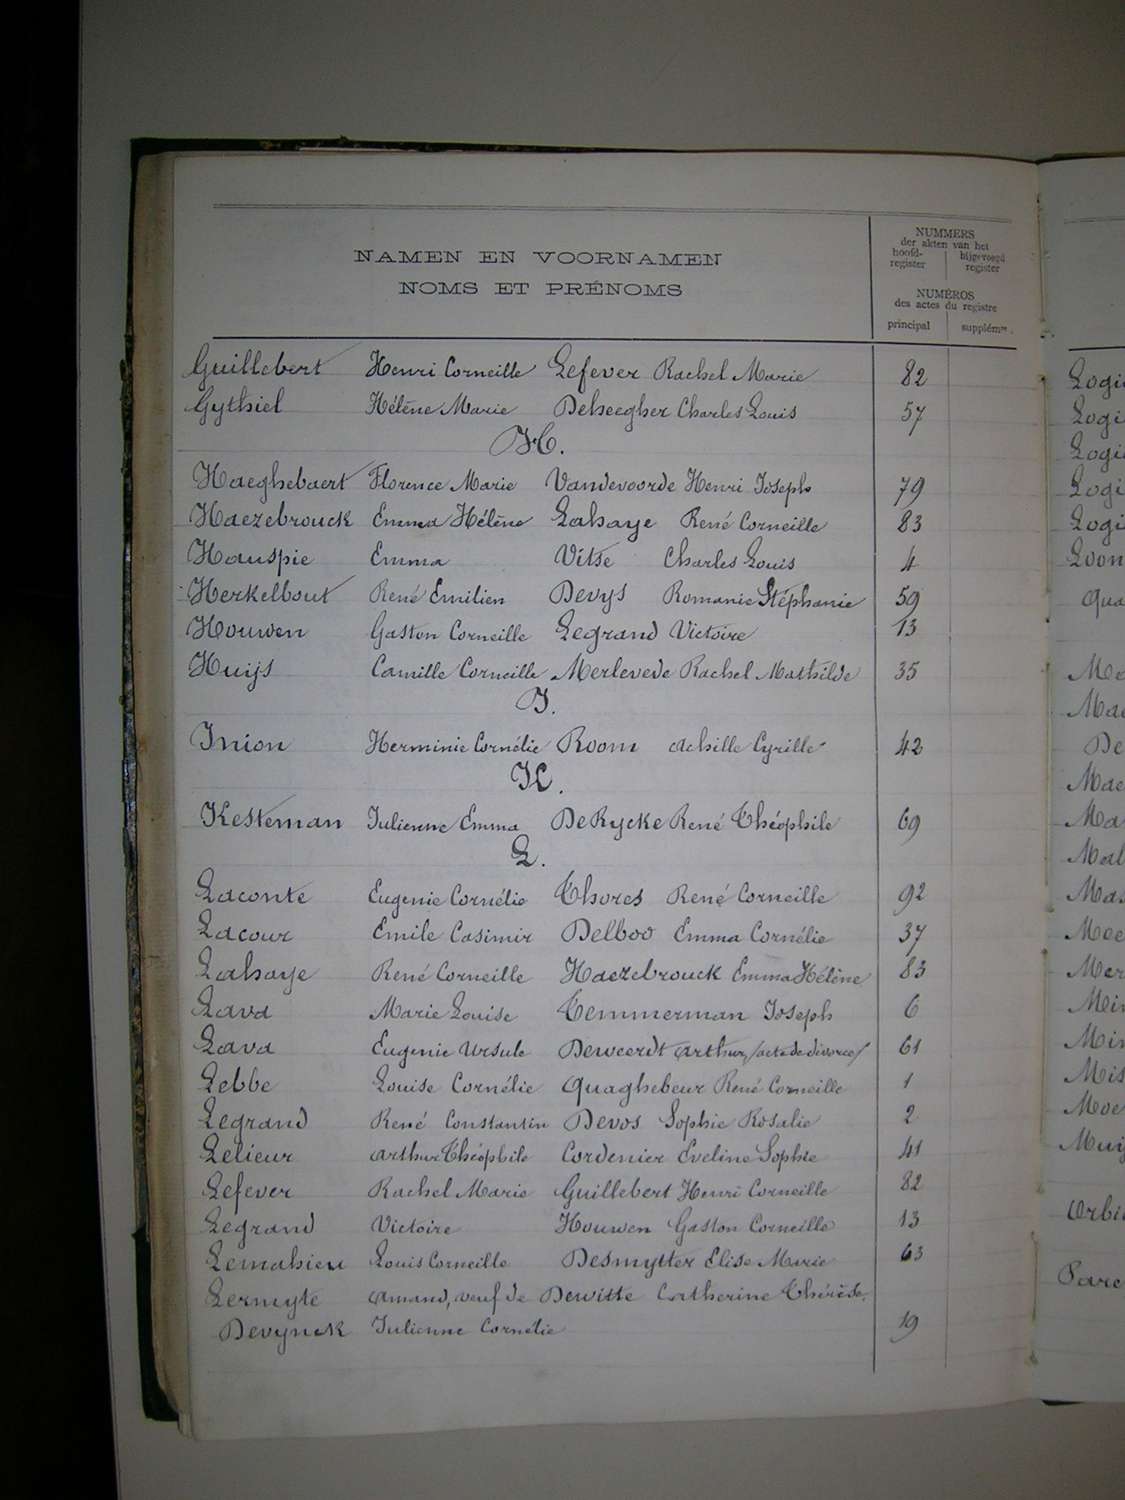 NAMEN EN VOORNAMEN
NOMS ET PRÉNOMS
NUMMERS
der akten van het
hoofd- bijgevoegd
register register
NUMÉROS
des actes du registre
principal supplémre.
Guillebert Henri Corneille Lefever Rachel Marie 82
Gythiel Hélène Marie Deheegher Charles Louis 57
H.
Haeghebaert Florence Marie Vandevoorde Henri Joseph 79
Haezebrouck Emma Hélène Lahaye René Corneille 83
Hauspie Emma Vitse Charles Louis 4
Herkelbout René Emilien Devys Romanie Stéphanie 59
Houwen Gaston Corneille Legrand Victoire 13
Huijs Camille Corneille Merlevede Rachel Mathilde 35
I.
Inion Herminie Cornélie Room Achille Cyrille 42
K.
Kesteman Julienne Emma DeRycke René Théophile 69
L.
Laconte Eugenie Cornélie Thores René Corneille 92
Lacour Emile Casimir Delboo Emma Cornélie 37
Lahaye René Corneille Haezebrouck Emma Hélène 83
Lava Marie Louise Temmerman Joseph 6
Lava Eugenie Ursule Deweerdt Arthur /acte de divorce/ 61
Lebbe Louise Cornélie Quaghebeur René Corneille 1
Legrand René Constantin Devos Sophie Rosalie 2
Lelieur Arthur Théophile Cordenier Eveline Sophie 41
Lefever Rachel Marie Guillebert Henri Corneille 82
Legrand Victoire Houwen Gaston Corneille 13
Lemahieu Louis Corneille Desmytter Elise Marie 63
Lermyte Amand, veuf de Dewitte Catherine Thérèse.
Devynck Julienne Cornélie 19